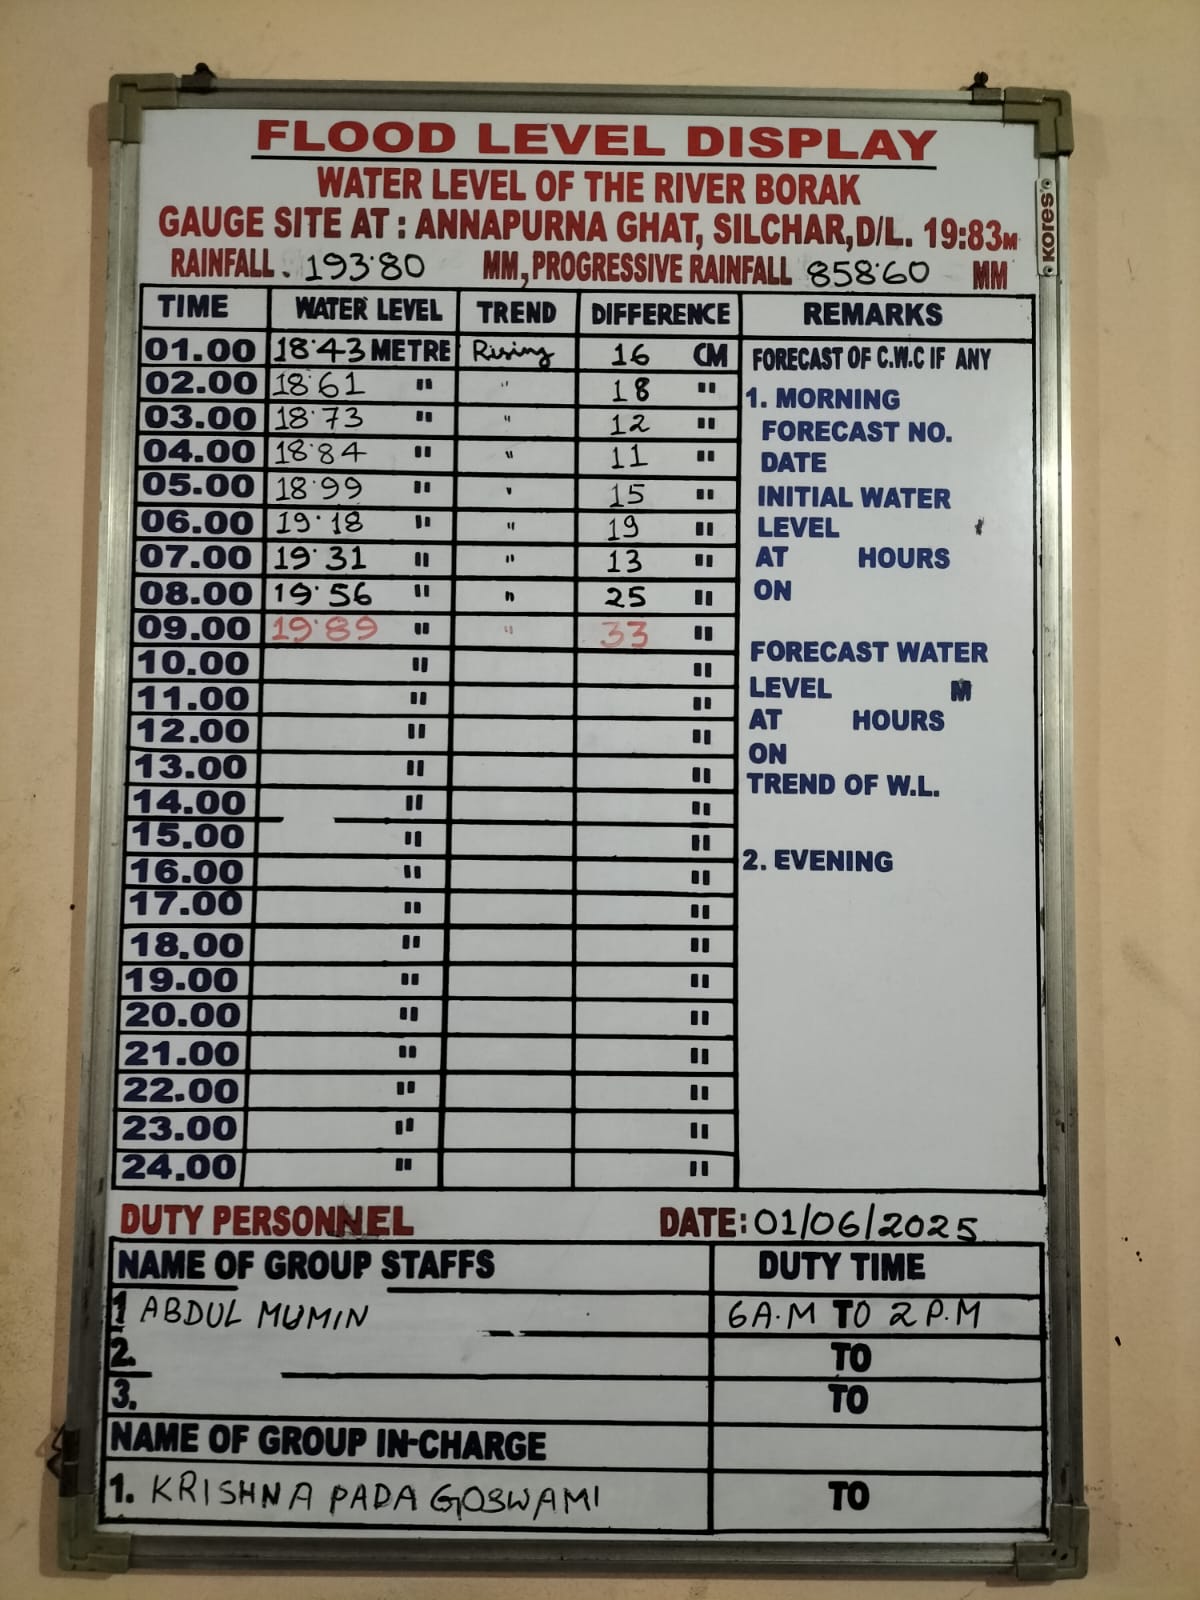 FLOOD LEVEL DISPLAY
WATER LEVEL OF THE RIVER BORAK
GAUGE SITE AT : ANNAPURNA GHAT, SILCHAR, D/L. 19:83M
RAINFALL. 193.80 MM, PROGRESSIVE RAINFALL 858.60 MM
KORES
TIME WATER LEVEL TREND DIFFERENCE REMARKS
01.00 18.43 METRE Rising 16 CM
02.00 18.61 " " 18 "
03.00 18.73 " " 12 "
04.00 18.84 " " 11 "
05.00 18.99 " " 15 "
06.00 19.18 " " 19 "
07.00 19.31 " " 13 "
08.00 19.56 " " 25 "
09.00 19.89 " " 33 "
10.00 " "
11.00 " "
12.00 " "
13.00 " "
14.00 " "
15.00 " "
16.00 " "
17.00 " "
18.00 " "
19.00 " "
20.00 " "
21.00 " "
22.00 " "
23.00 " "
24.00 " "
FORECAST OF C.W.C IF ANY
1. MORNING
FORECAST NO.
DATE
INITIAL WATER
LEVEL
AT HOURS
ON
FORECAST WATER
LEVEL M
AT HOURS
ON
TREND OF W.L.
2. EVENING
DUTY PERSONNEL DATE: 01/06/2025
NAME OF GROUP STAFFS DUTY TIME
1 ABDUL MUMIN 6 A.M TO 2 P.M
2. TO
3. TO
NAME OF GROUP IN-CHARGE
1. KRISHNA PADA GOSWAMI TO